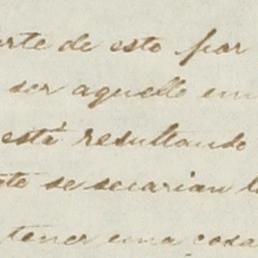 arte de esto por
ser aquello em
está resultando
te se secarian l
tener una cosa